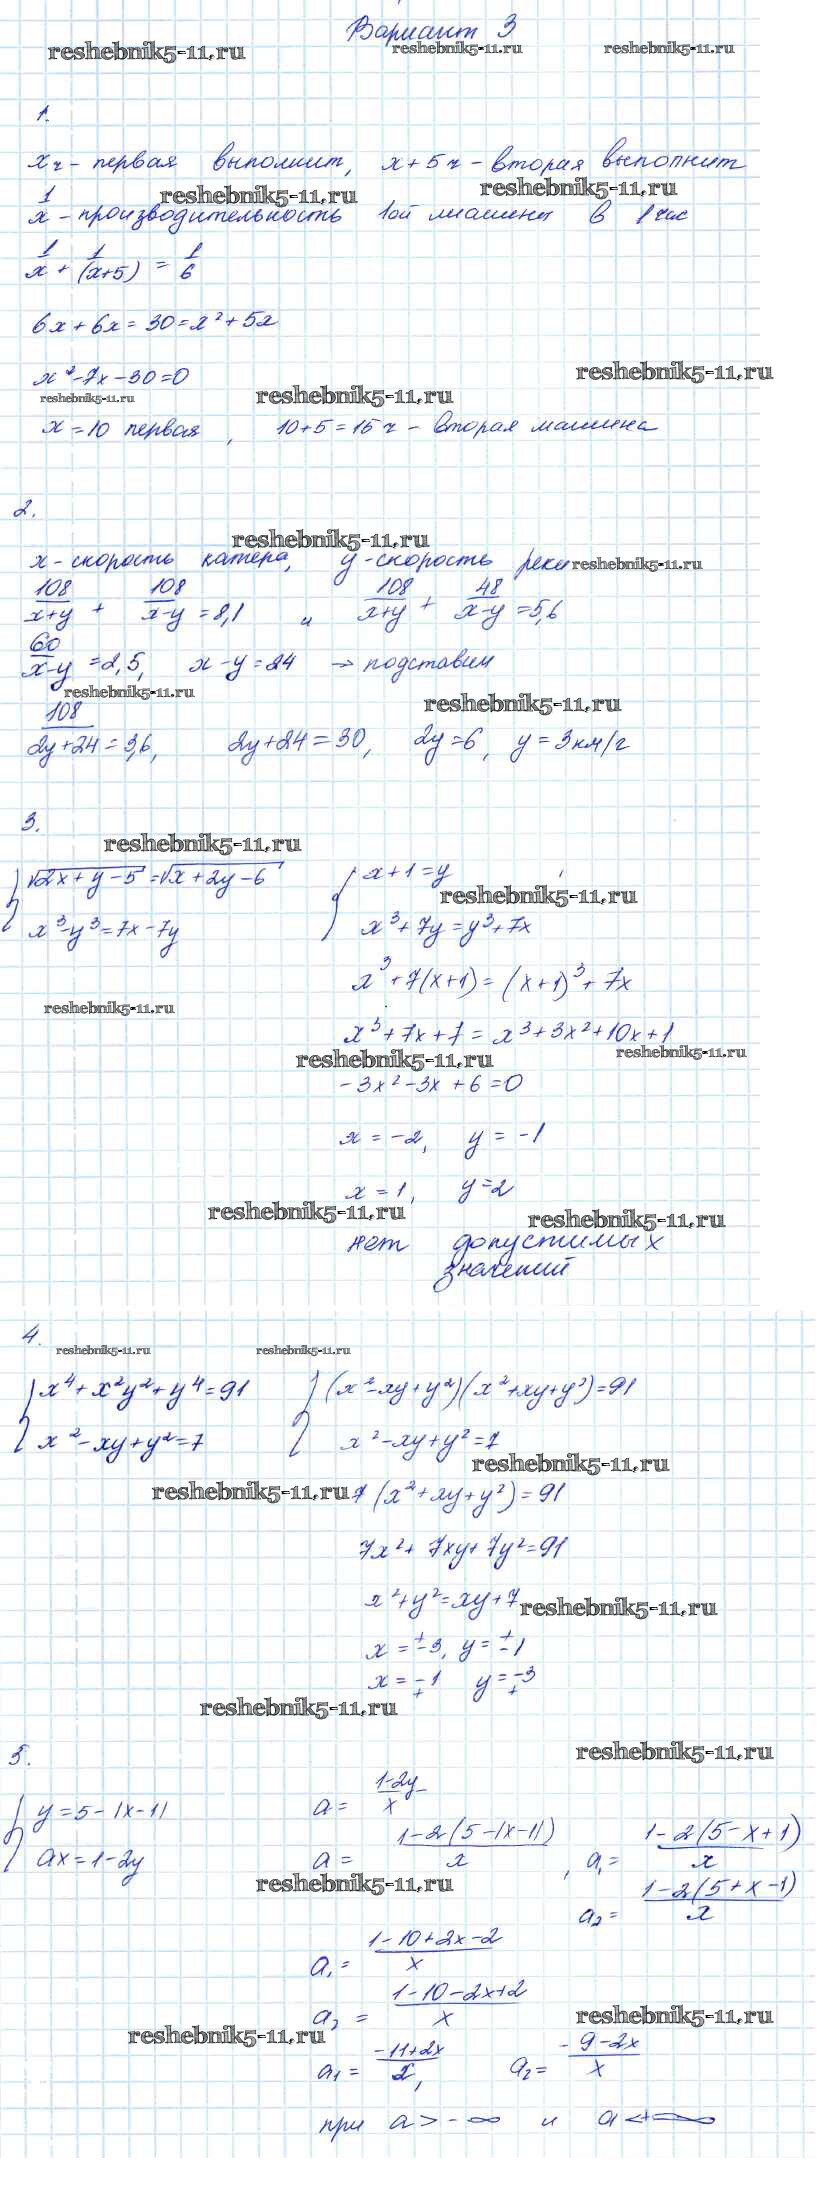 Вариант 3
reshebnik5-11.ru reshebnik5-11.ru reshebnik5-11.ru
1.
x ч - первая выполнит, x+5 ч - вторая выполнит
reshebnik5-11.ru reshebnik5-11.ru
1/x - производительность 1ой машины в 1 час
1/x + 1/(x+5) = 1/6
6x+6x=30=x²+5x
x²-7x-30=0
reshebnik5-11.ru
reshebnik5-11.ru reshebnik5-11.ru
x=10 первая, 10+5=15 ч - вторая машина
2.
reshebnik5-11.ru
x - скорость катера, y - скорость реки
reshebnik5-11.ru
108/(x+y) + 108/(x-y) = 8,1 и 108/(x+y) + 48/(x-y) = 5,6
60/(x-y) = 2,5, x-y=24 → подставим
reshebnik5-11.ru reshebnik5-11.ru
108/(2y+24) = 3,6, 2y+24=30, 2y=6, y=3км/ч
3.
reshebnik5-11.ru
{ √(2x+y-5) = √(x+2y-6) { x+1=y
reshebnik5-11.ru
x³-y³=7x-7y x³+7y=y³+7x
x³+7(x+1)=(x+1)³+7x
reshebnik5-11.ru
x³+7x+7=x³+3x²+10x+1
reshebnik5-11.ru reshebnik5-11.ru
-3x²-3x+6=0
x=-2, y=-1
x=1, y=2
reshebnik5-11.ru reshebnik5-11.ru
нет допустимых
значений
4.
reshebnik5-11.ru reshebnik5-11.ru
{ x⁴+x²y²+y⁴=91 { (x²-xy+y²)(x²+xy+y²)=91
x²-xy+y²=7 x²-xy+y²=7
reshebnik5-11.ru
reshebnik5-11.ru
7(x²+xy+y²)=91
7x²+7xy+7y²=91
x²+y²=xy+7
reshebnik5-11.ru
x=±3, y=±1
x=∓1 y=∓3
reshebnik5-11.ru
5.
reshebnik5-11.ru
{ y=5-|x-1| a=(1-2y)/x
ax=1-2y a=(1-2(5-|x-1|))/x, a₁=(1-2(5-x+1))/x
reshebnik5-11.ru
a₂=(1-2(5+x-1))/x
a₁=(1-10+2x-2)/x
a₂=(1-10-2x+2)/x
reshebnik5-11.ru reshebnik5-11.ru
a₁=(-11+2x)/x, a₂=(-9-2x)/x
при a>-∞ и a<+∞